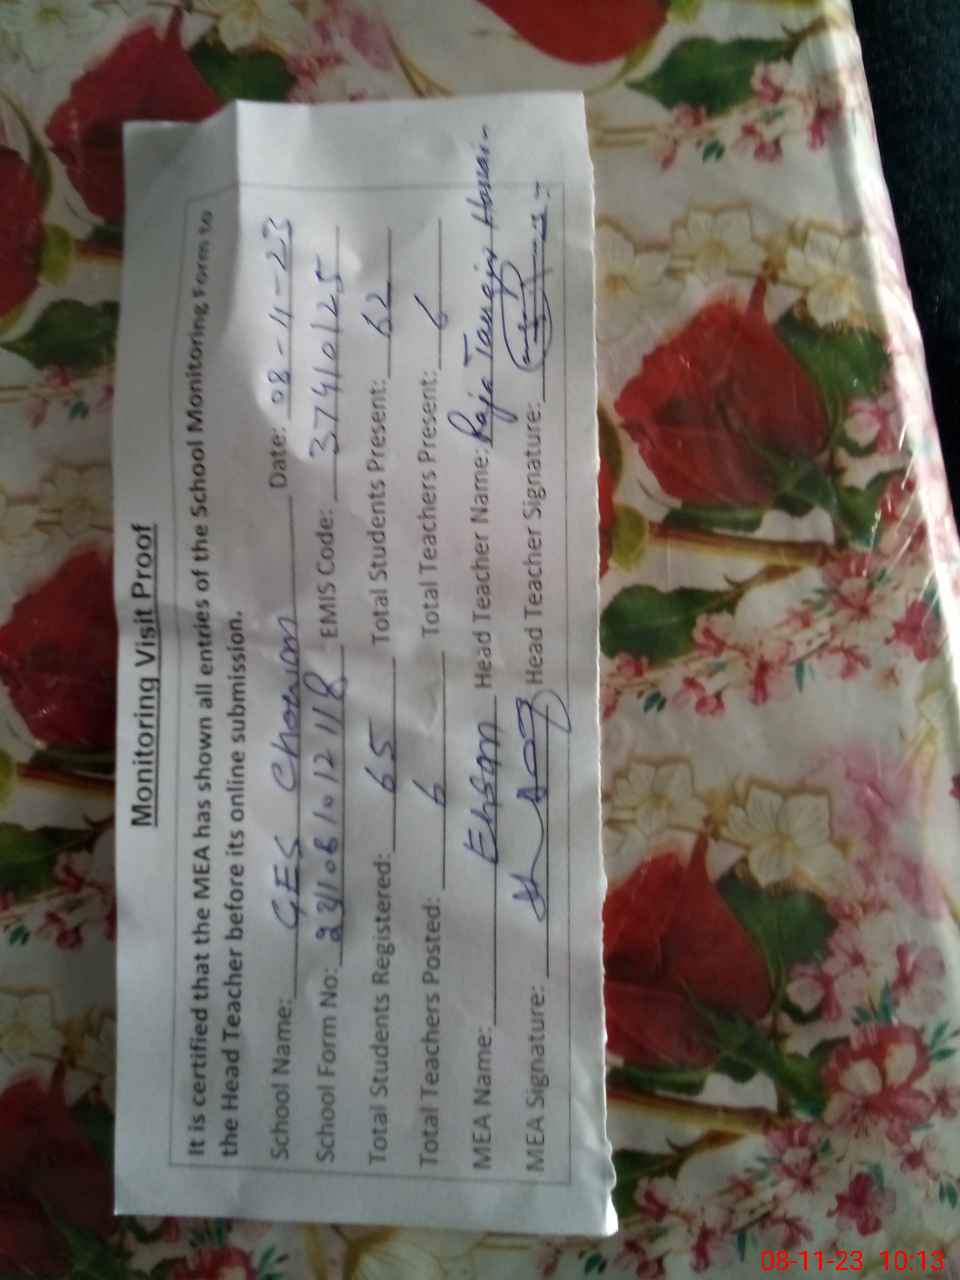 Monitoring Visit Proof
It is certified that the MEA has shown all entries of the School Monitoring Form to
the Head Teacher before its online submission.
School Name: GES Chowan Date: 08-11-23
School Form No: 2311081012118 EMIS Code: 37410125
Total Students Registered: 65 Total Students Present: 62
Total Teachers Posted: 6 Total Teachers Present: 6
MEA Name: Ehsan Head Teacher Name: Raja Tauqir Hussain
MEA Signature: Head Teacher Signature:
08-11-23 10:13